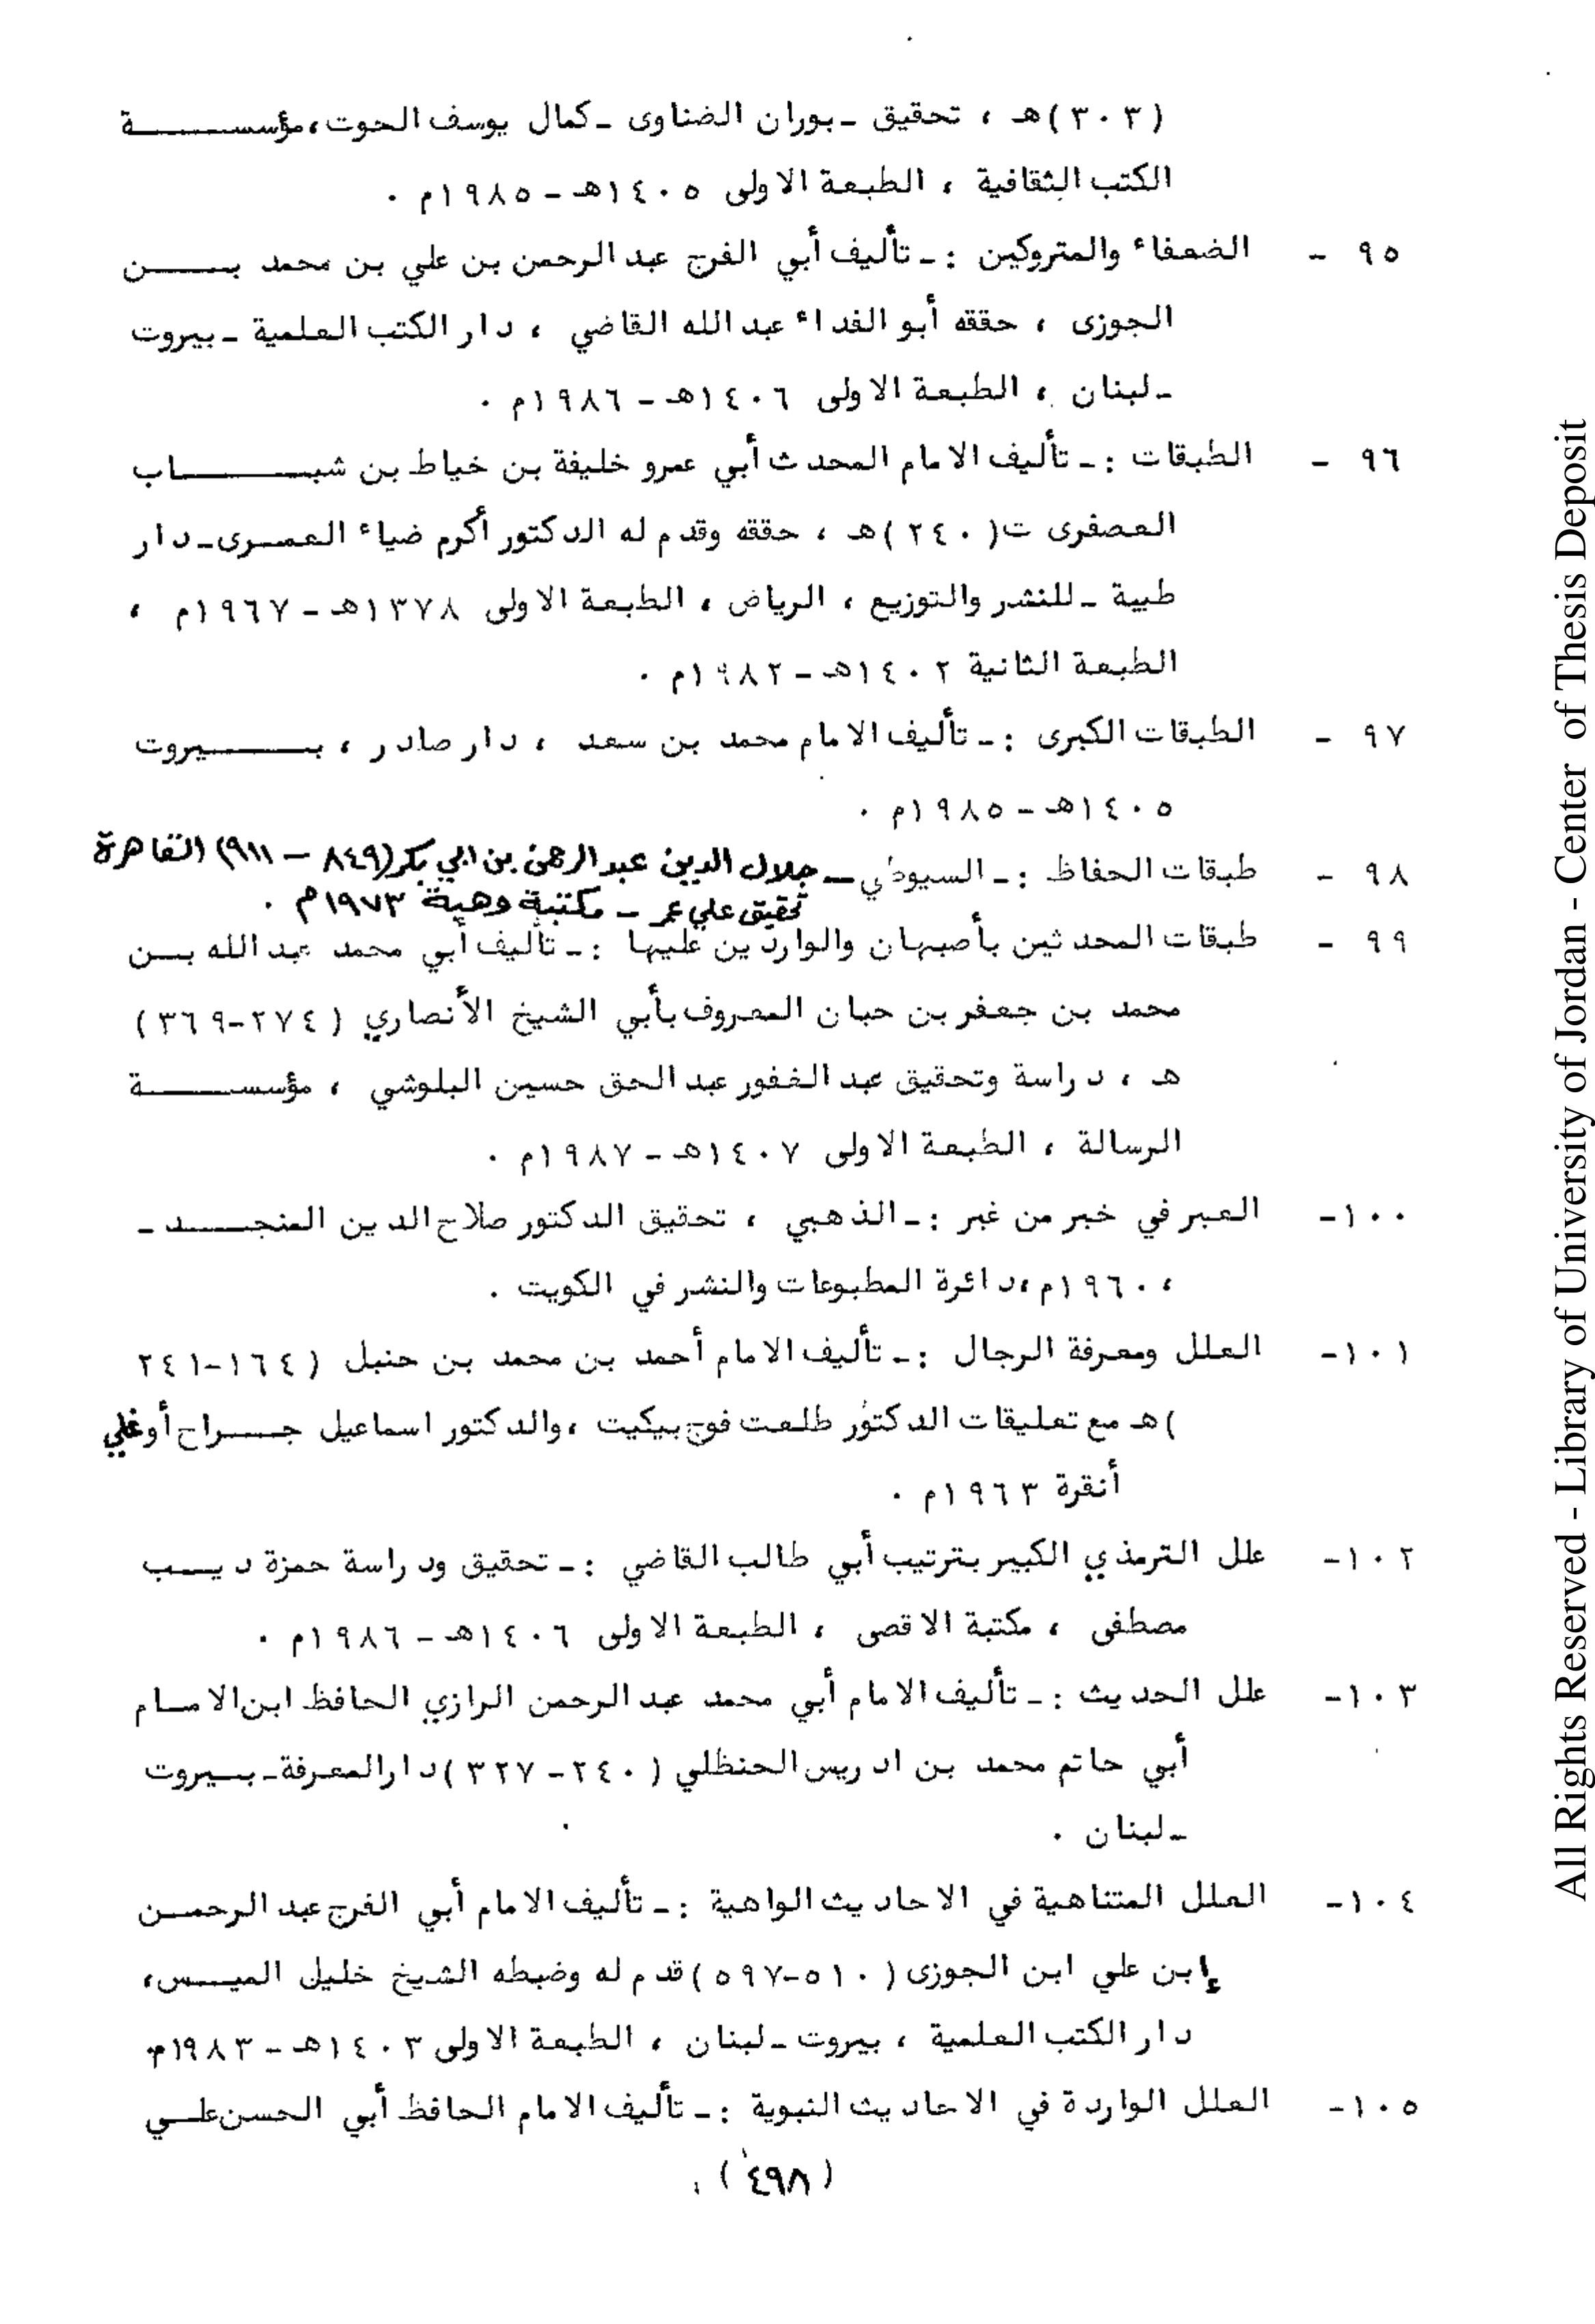 (٣٠٣)هـ ، تحقيق ـ بوران الضناوى ـ كمال يوسف الحوت ، مؤسسة
الكتب الثقافية ، الطبعة الاولى ١٤٠٥هـ - ١٩٨٥م .
٩٥ - الضعفاء والمتروكين : ـ تأليف أبي الفرج عبد الرحمن بن علي بن محمد بن
الجوزى ، حققه أبو الفداء عبد الله القاضي ، دار الكتب العلمية ـ بيروت
ـ لبنان ، الطبعة الاولى ١٤٠٦هـ - ١٩٨٦م .
٩٦ - الطبقات : ـ تأليف الامام المحدث أبي عمرو خليفة بن خياط بن شباب
العصفرى ت(٢٤٠)هـ ، حققه وقدم له الدكتور أكرم ضياء العمرى ـ دار
طيبة ـ للنشر والتوزيع ، الرياض ، الطبعة الاولى ١٣٧٨هـ - ١٩٦٧م ،
الطبعة الثانية ١٤٠٢هـ - ١٩٨٢م .
٩٧ - الطبقات الكبرى : ـ تأليف الامام محمد بن سعد ، دار صادر ، بيروت
١٤٠٥هـ - ١٩٨٥م .
٩٨ - طبقات الحفاظ : ـ السيوطي ـ جلال الدين عبد الرحمن بن ابي بكر (٨٤٩ – ٩١١) القاهرة
تحقيق علي عمر - مكتبة وهبة ١٩٧٣م .
٩٩ - طبقات المحدثين بأصبهان والواردين عليها : ـ تأليف أبي محمد عبد الله بن
محمد بن جعفر بن حبان المعروف بأبي الشيخ الأنصاري (٢٧٤-٣٦٩)
هـ ، دراسة وتحقيق عبد الغفور عبد الحق حسين البلوشي ، مؤسسة
الرسالة ، الطبعة الاولى ١٤٠٧هـ - ١٩٨٧م .
١٠٠- العبر في خبر من غبر : ـ الذهبي ، تحقيق الدكتور صلاح الدين المنجد -
، ١٩٦٠م ، دائرة المطبوعات والنشر في الكويت .
١٠١- العلل ومعرفة الرجال : ـ تأليف الامام أحمد بن محمد بن حنبل (١٦٤-٢٤١
)هـ مع تعليقات الدكتور طلعت فوج بيكيت ، والدكتور اسماعيل جراح أوغلي
أنقرة ١٩٦٣م .
١٠٢- علل الترمذي الكبير بترتيب أبي طالب القاضي : ـ تحقيق ودراسة حمزة ديب
مصطفى ، مكتبة الاقصى ، الطبعة الاولى ١٤٠٦هـ - ١٩٨٦م .
١٠٣- علل الحديث : ـ تأليف الامام أبي محمد عبد الرحمن الرازي الحافظ ابن الامام
أبي حاتم محمد بن ادريس الحنظلي (٢٤٠-٣٢٧) دار المعرفة ـ بيروت
ـ لبنان .
١٠٤- العلل المتناهية في الاحاديث الواهية : ـ تأليف الامام أبي الفرج عبد الرحمن
إبن علي ابن الجوزى (٥١٠-٥٩٧) قدم له وضبطه الشيخ خليل الميس ،
دار الكتب العلمية ، بيروت ـ لبنان ، الطبعة الاولى ١٤٠٣هـ - ١٩٨٣م
١٠٥- العلل الواردة في الاحاديث النبوية : ـ تأليف الامام الحافظ أبي الحسن علي
(٤٩٨)
All Rights Reserved - Library of University of Jordan - Center of Thesis Deposit